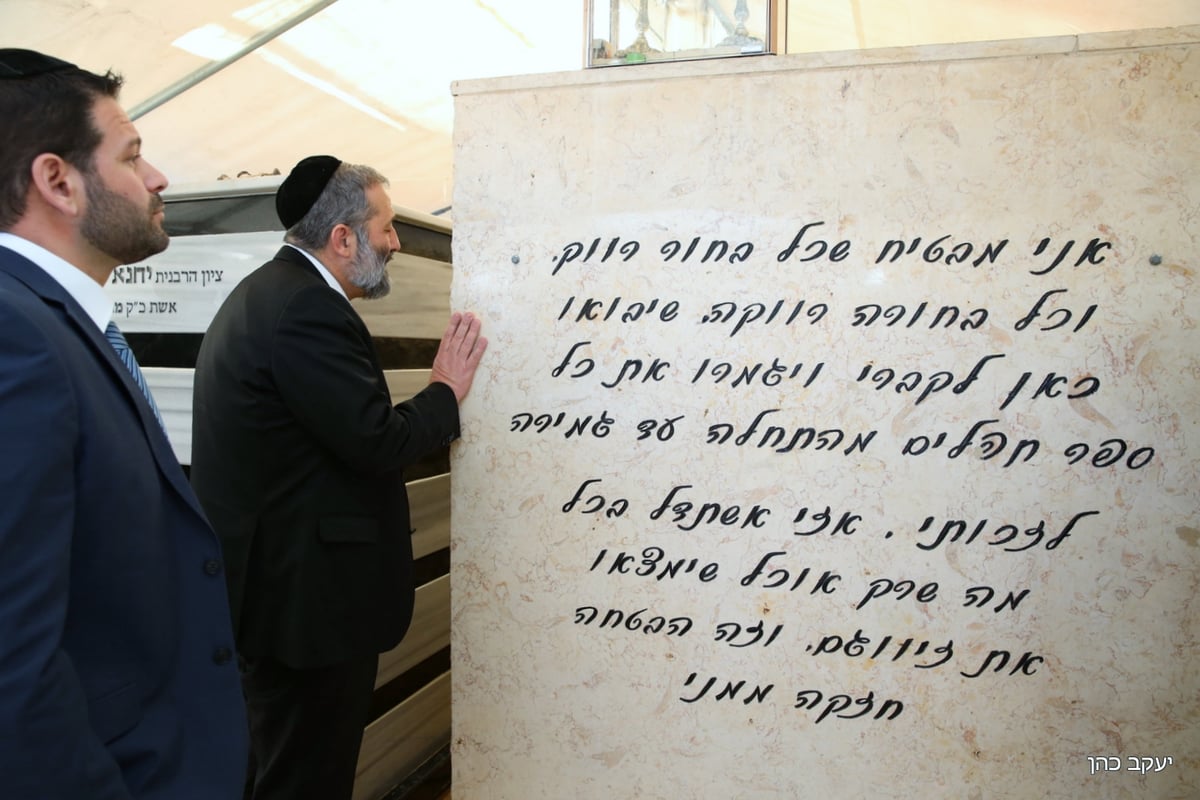 אני מבטיח שכל בחור רווק,
וכל בחורה רווקה, שיבואו
כאן לקברי ויגמרו את כל
ספר תהלים מהתחלה עד גמירה
לזכותי. אזי אשתדל בכל
מה שרק אוכל שימצאו
את זיווגם, וזה הבטחה
חזקה ממני
ציון הרבנית יחנא
אשת כ"ק מ
יעקב כהן